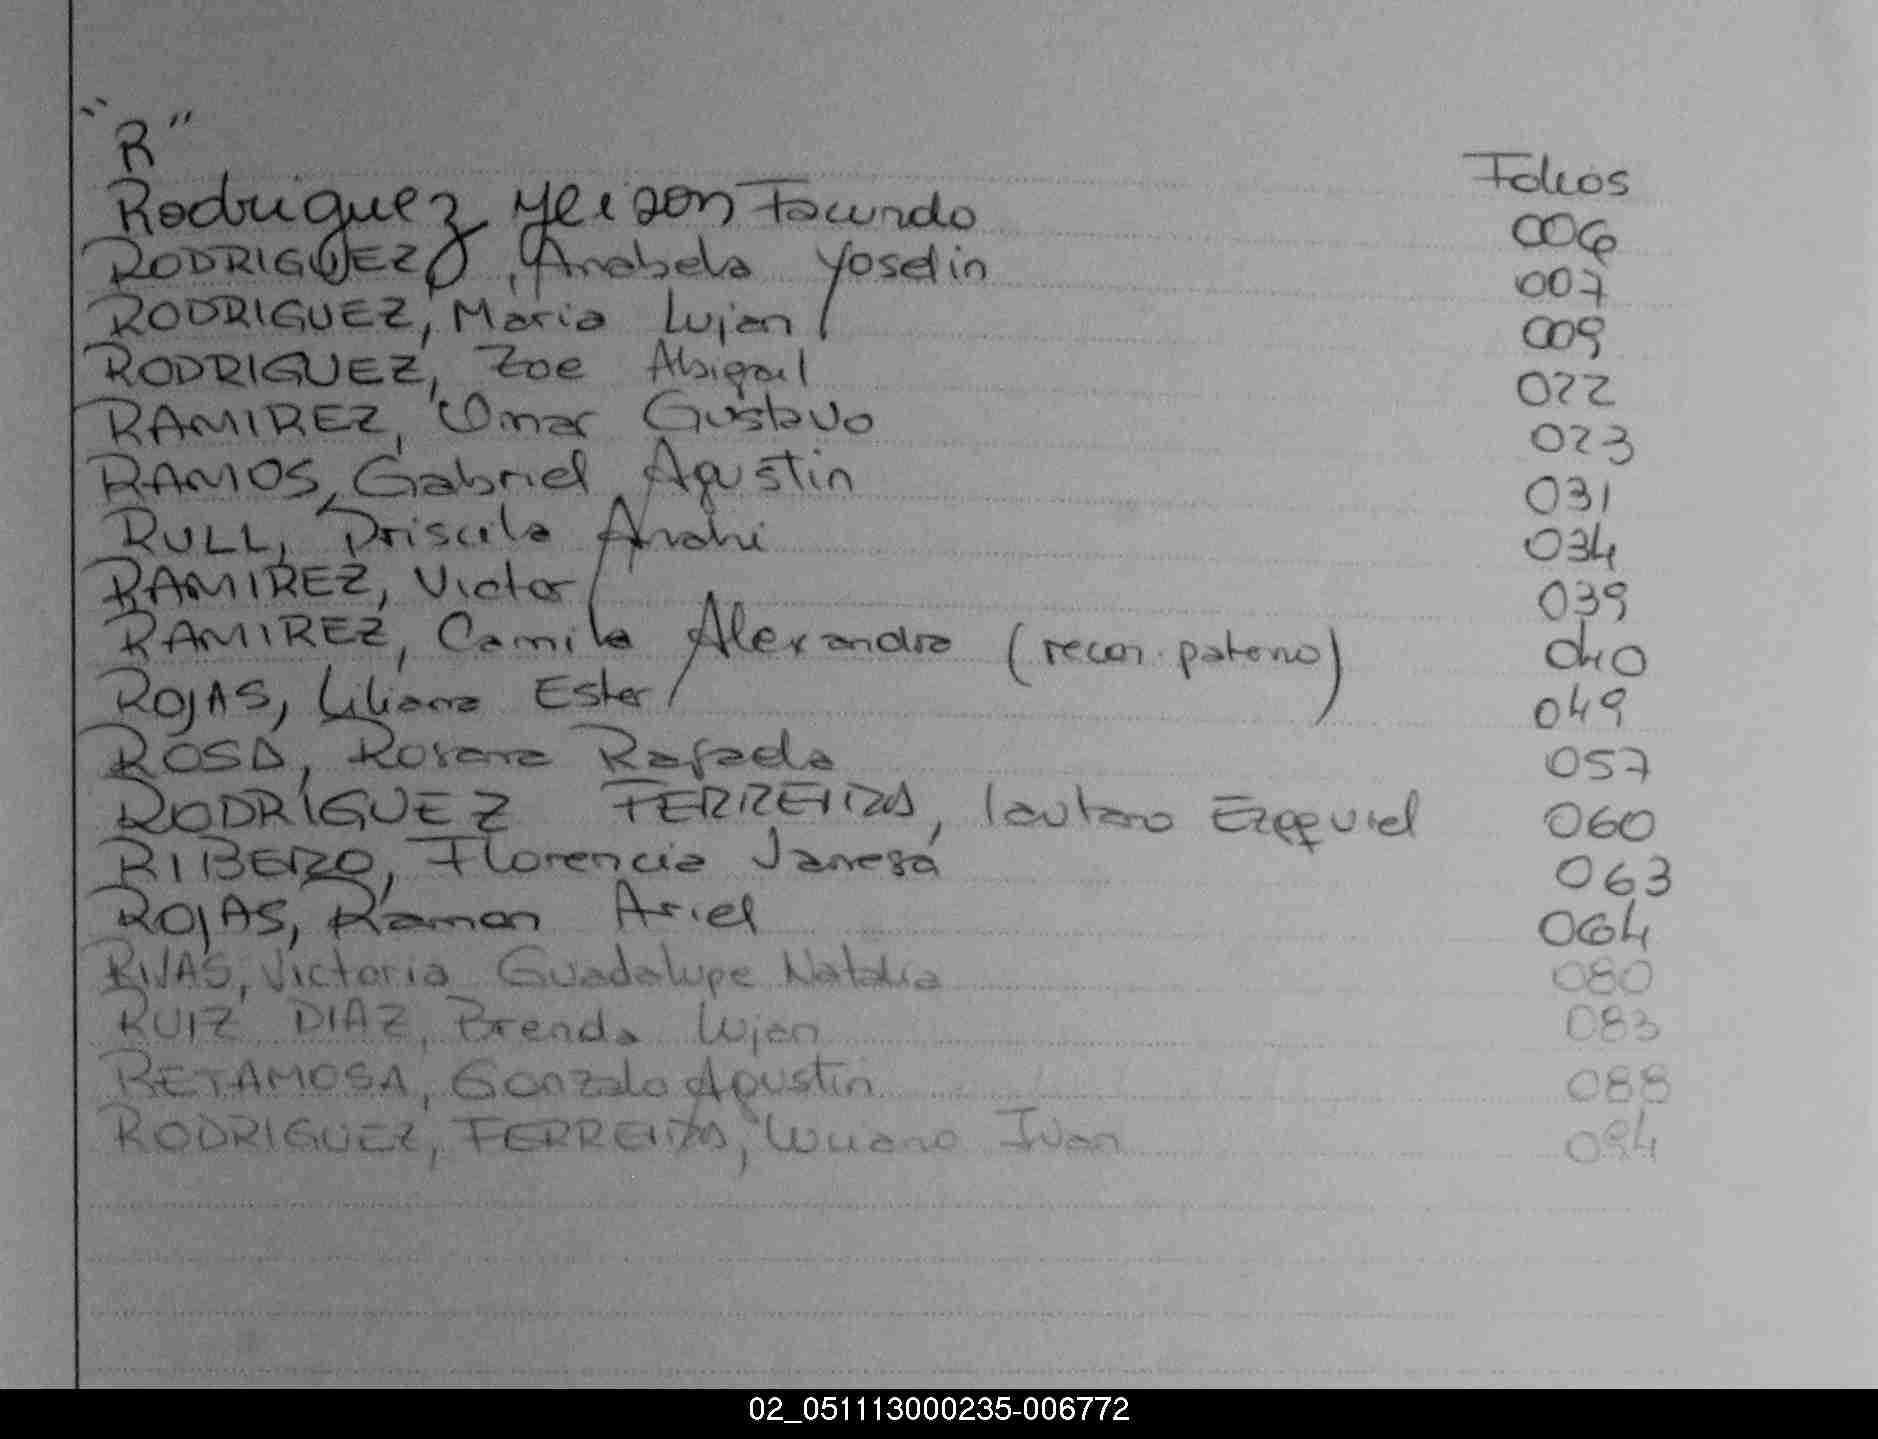 "R"
Folios
Rodriguez Yeison Facundo 006
RODRIGUEZ, Anabela Yoselin 007
RODRIGUEZ, Maria Lujan 009
RODRIGUEZ, Zoe Abigail 022
RAMIREZ, Omar Gustavo 023
RAMOS, Gabriel Agustin 031
RULL, Priscila Anahi 034
RAMIREZ, Victor 039
RAMIREZ, Camila Alexandra (recon. paterno) 040
ROJAS, Liliana Ester 049
ROSA, Rosana Rafaela 057
RODRIGUEZ FERREIRA, lautaro Ezequiel 060
RIBERO, Florencia Vanesa 063
ROJAS, Ramon Ariel 064
RIVAS, Victoria Guadalupe Natalia 080
RUIZ DIAZ, Brenda Lujan 083
RETAMOSA, Gonzalo Agustin 088
RODRIGUEZ, FERREIRA, Luciano Ivan 094
02_051113000235-006772